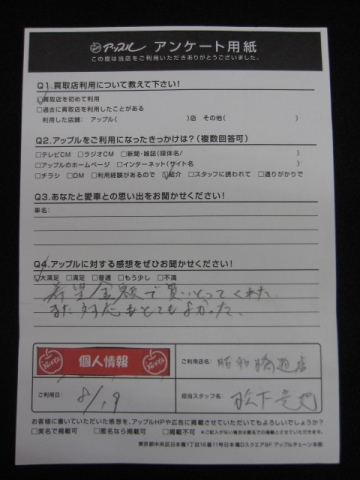 アップル アンケート用紙
この度は当店をご利用いただきありがとうございました。
Q1.買取店利用について教えて下さい!
☑買取店を初めて利用
□過去に買取店を利用したことがある
利用した店舗: アップル( )店 その他( )
Q2.アップルをご利用になったきっかけは?(複数回答可)
□テレビCM □ラジオCM □新聞・雑誌(媒体名/ )
□アップルのホームページ □インターネット(サイト名 )
□チラシ □DM □利用経験があるので ☑紹介 □スタッフに誘われて □通りがかりで
Q3.あなたと愛車との思い出をお聞かせください!
車名:
Q4.アップルに対する感想をぜひお聞かせください!
☑大満足 □満足 □普通 □もう少し □不満
希望金額で買いとってくれた。
また対応もとてもよかった。
個人情報
ご利用店名: 昭和橋通店
ご利用日: 8/19
担当スタッフ名: 松下
お客様に書いていただいた感想を、アップルHPや広告に掲載させていただいてもよろしいでしょうか?
□実名で掲載可 □匿名なら掲載可 □掲載不可 ※ご記入がない場合は匿名での掲載とさせていただきます。
東京都中央区日本橋1丁目16番11号日本橋Dスクエア5F アップルチェーン本部